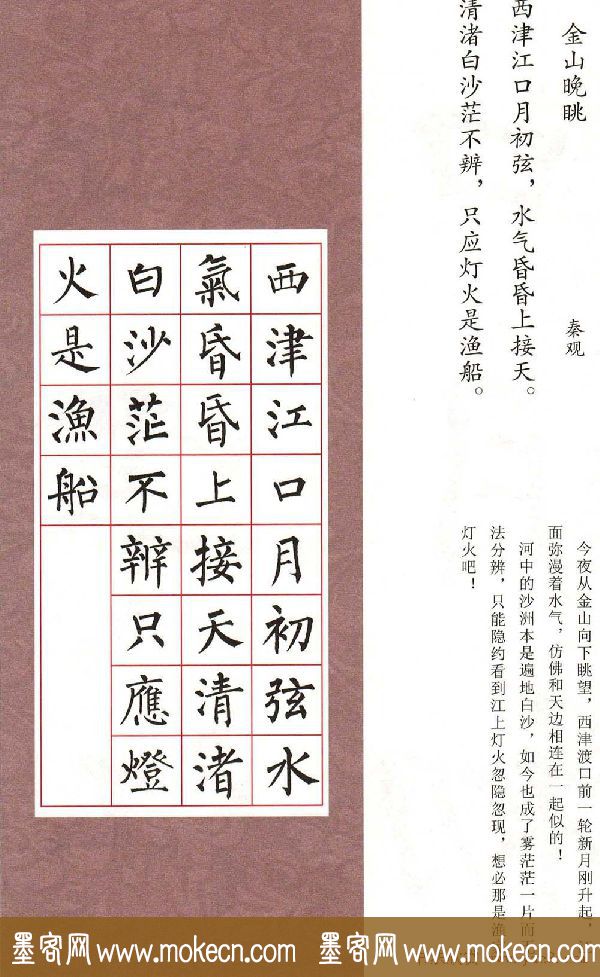 金山晚眺
秦观
西津江口月初弦，水气昏昏上接天。
清渚白沙茫不辨，只应灯火是渔船。
今夜从金山向下眺望，西津渡口前一轮新月刚升起，
面弥漫着水气，仿佛和天边相连在一起似的！
河中的沙洲本是遍地白沙，如今也成了雾茫茫一片而
法分辨，只能隐约看到江上灯火忽隐忽现，想必那是渔
灯火吧！
西津江口月初弦水
氣昏昏上接天清渚
白沙茫不辨只應燈
火是漁船
墨客网 www.mokecn.com 墨客网 www.mokecn.com